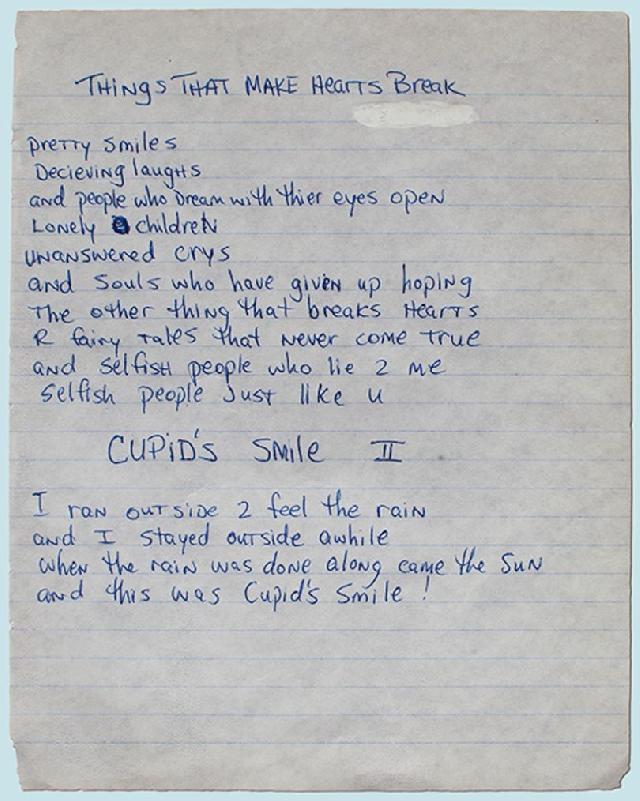 THINGS THAT MAKE HEARTS BREAK
pretty smiles
Decieving laughs
and people who Dream with thier eyes open
Lonely children
unanswered crys
and Souls who have given up hoping
The other thing that breaks Hearts
R fairy Tales that never come True
and selfish people who lie 2 me
Selfish people Just like U
CUPID'S SMILE II
I ran outside 2 feel the rain
and I stayed outside awhile
when the rain was done along came the Sun
and this was Cupid's Smile !